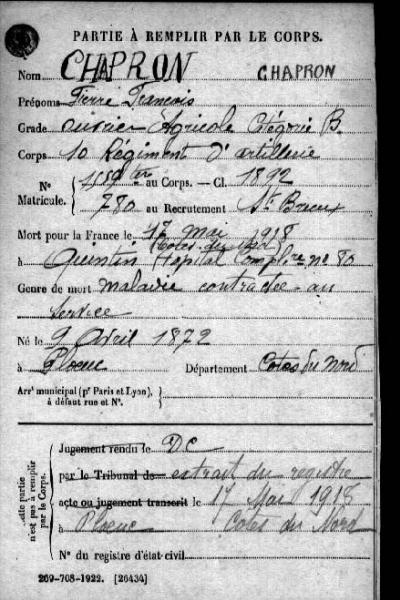 PARTIE À REMPLIR PAR LE CORPS.
Nom CHAPRON CHAPRON
Prénoms Pierre François
Grade ouvrier Agricole Catégorie B.
Corps 10 Régiment d'artillerie
N° Matricule. { au Corps. — Cl. 1892
780 au Recrutement St Brieuc
Mort pour la France le Mai 1918
(Cotes-du-Nord)
à Quintin Hopital Complre no 80
Genre de mort maladie contractée au
service
Né le 9 Avril 1872
à Ploeuc Département Cotes du Nord
Arrt municipal (pr Paris et Lyon), }
à défaut rue et N°. }
Cette partie n'est pas à remplir par le Corps.
Jugement rendu le DC
par le Tribunal de extrait du registre
acte ou jugement transcrit le 17 Mai 1918
à Ploeuc Cotes du Nord
N° du registre d'état civil
269-708-1922. [26434]